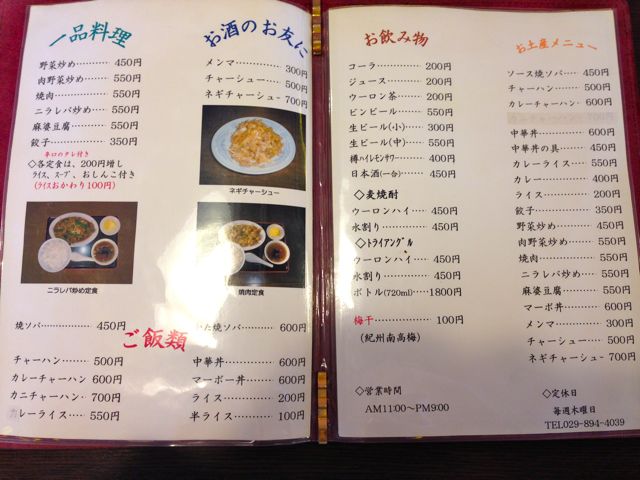 一品料理
野菜炒め………… 450円
肉野菜炒め……… 550円
焼肉………………… 550円
ニラレバ炒め…… 550円
麻婆豆腐………… 550円
餃子………………… 350円
辛口のタレ付き
◇各定食は、200円増し
ライス、スープ、おしんこ付き
(ライスおかわり100円)
ニラレバ炒め定食
お酒のお友に
メンマ…………… 300円
チャーシュー…… 500円
ネギチャーシュー 700円
ネギチャーシュー
焼肉定食
焼ソバ…………… 450円
た焼ソバ………… 600円
ご飯類
チャーハン……… 500円
カレーチャーハン 600円
カニチャーハン… 700円
カレーライス…… 550円
中華丼…………… 600円
マーボー丼……… 600円
ライス…………… 200円
半ライス………… 100円
お飲み物
コーラ…………… 200円
ジュース………… 200円
ウーロン茶……… 200円
ビンビール……… 550円
生ビール(小)…… 300円
生ビール(中)…… 550円
樽ハイレモンサワー… 400円
日本酒(一合)…… 350円
◇麦焼酎
ウーロンハイ…… 450円
水割り…………… 450円
◇トライアングル
ウーロンハイ…… 450円
水割り…………… 450円
ボトル(720ml)… 1800円
梅干……………… 100円
(紀州南高梅)
◇営業時間
AM11:00～PM9:00
お土産メニュー
ソース焼ソバ…… 450円
チャーハン……… 500円
カレーチャーハン 600円
700円
中華丼…………… 600円
中華丼の具……… 450円
カレーライス…… 550円
カレー…………… 400円
ライス…………… 200円
餃子……………… 350円
野菜炒め………… 450円
肉野菜炒め……… 550円
焼肉……………… 550円
ニラレバ炒め…… 550円
麻婆豆腐………… 550円
マーボ丼………… 600円
メンマ…………… 300円
チャーシュー…… 500円
ネギチャーシュー 700円
◇定休日
毎週木曜日
TEL029-894-4039